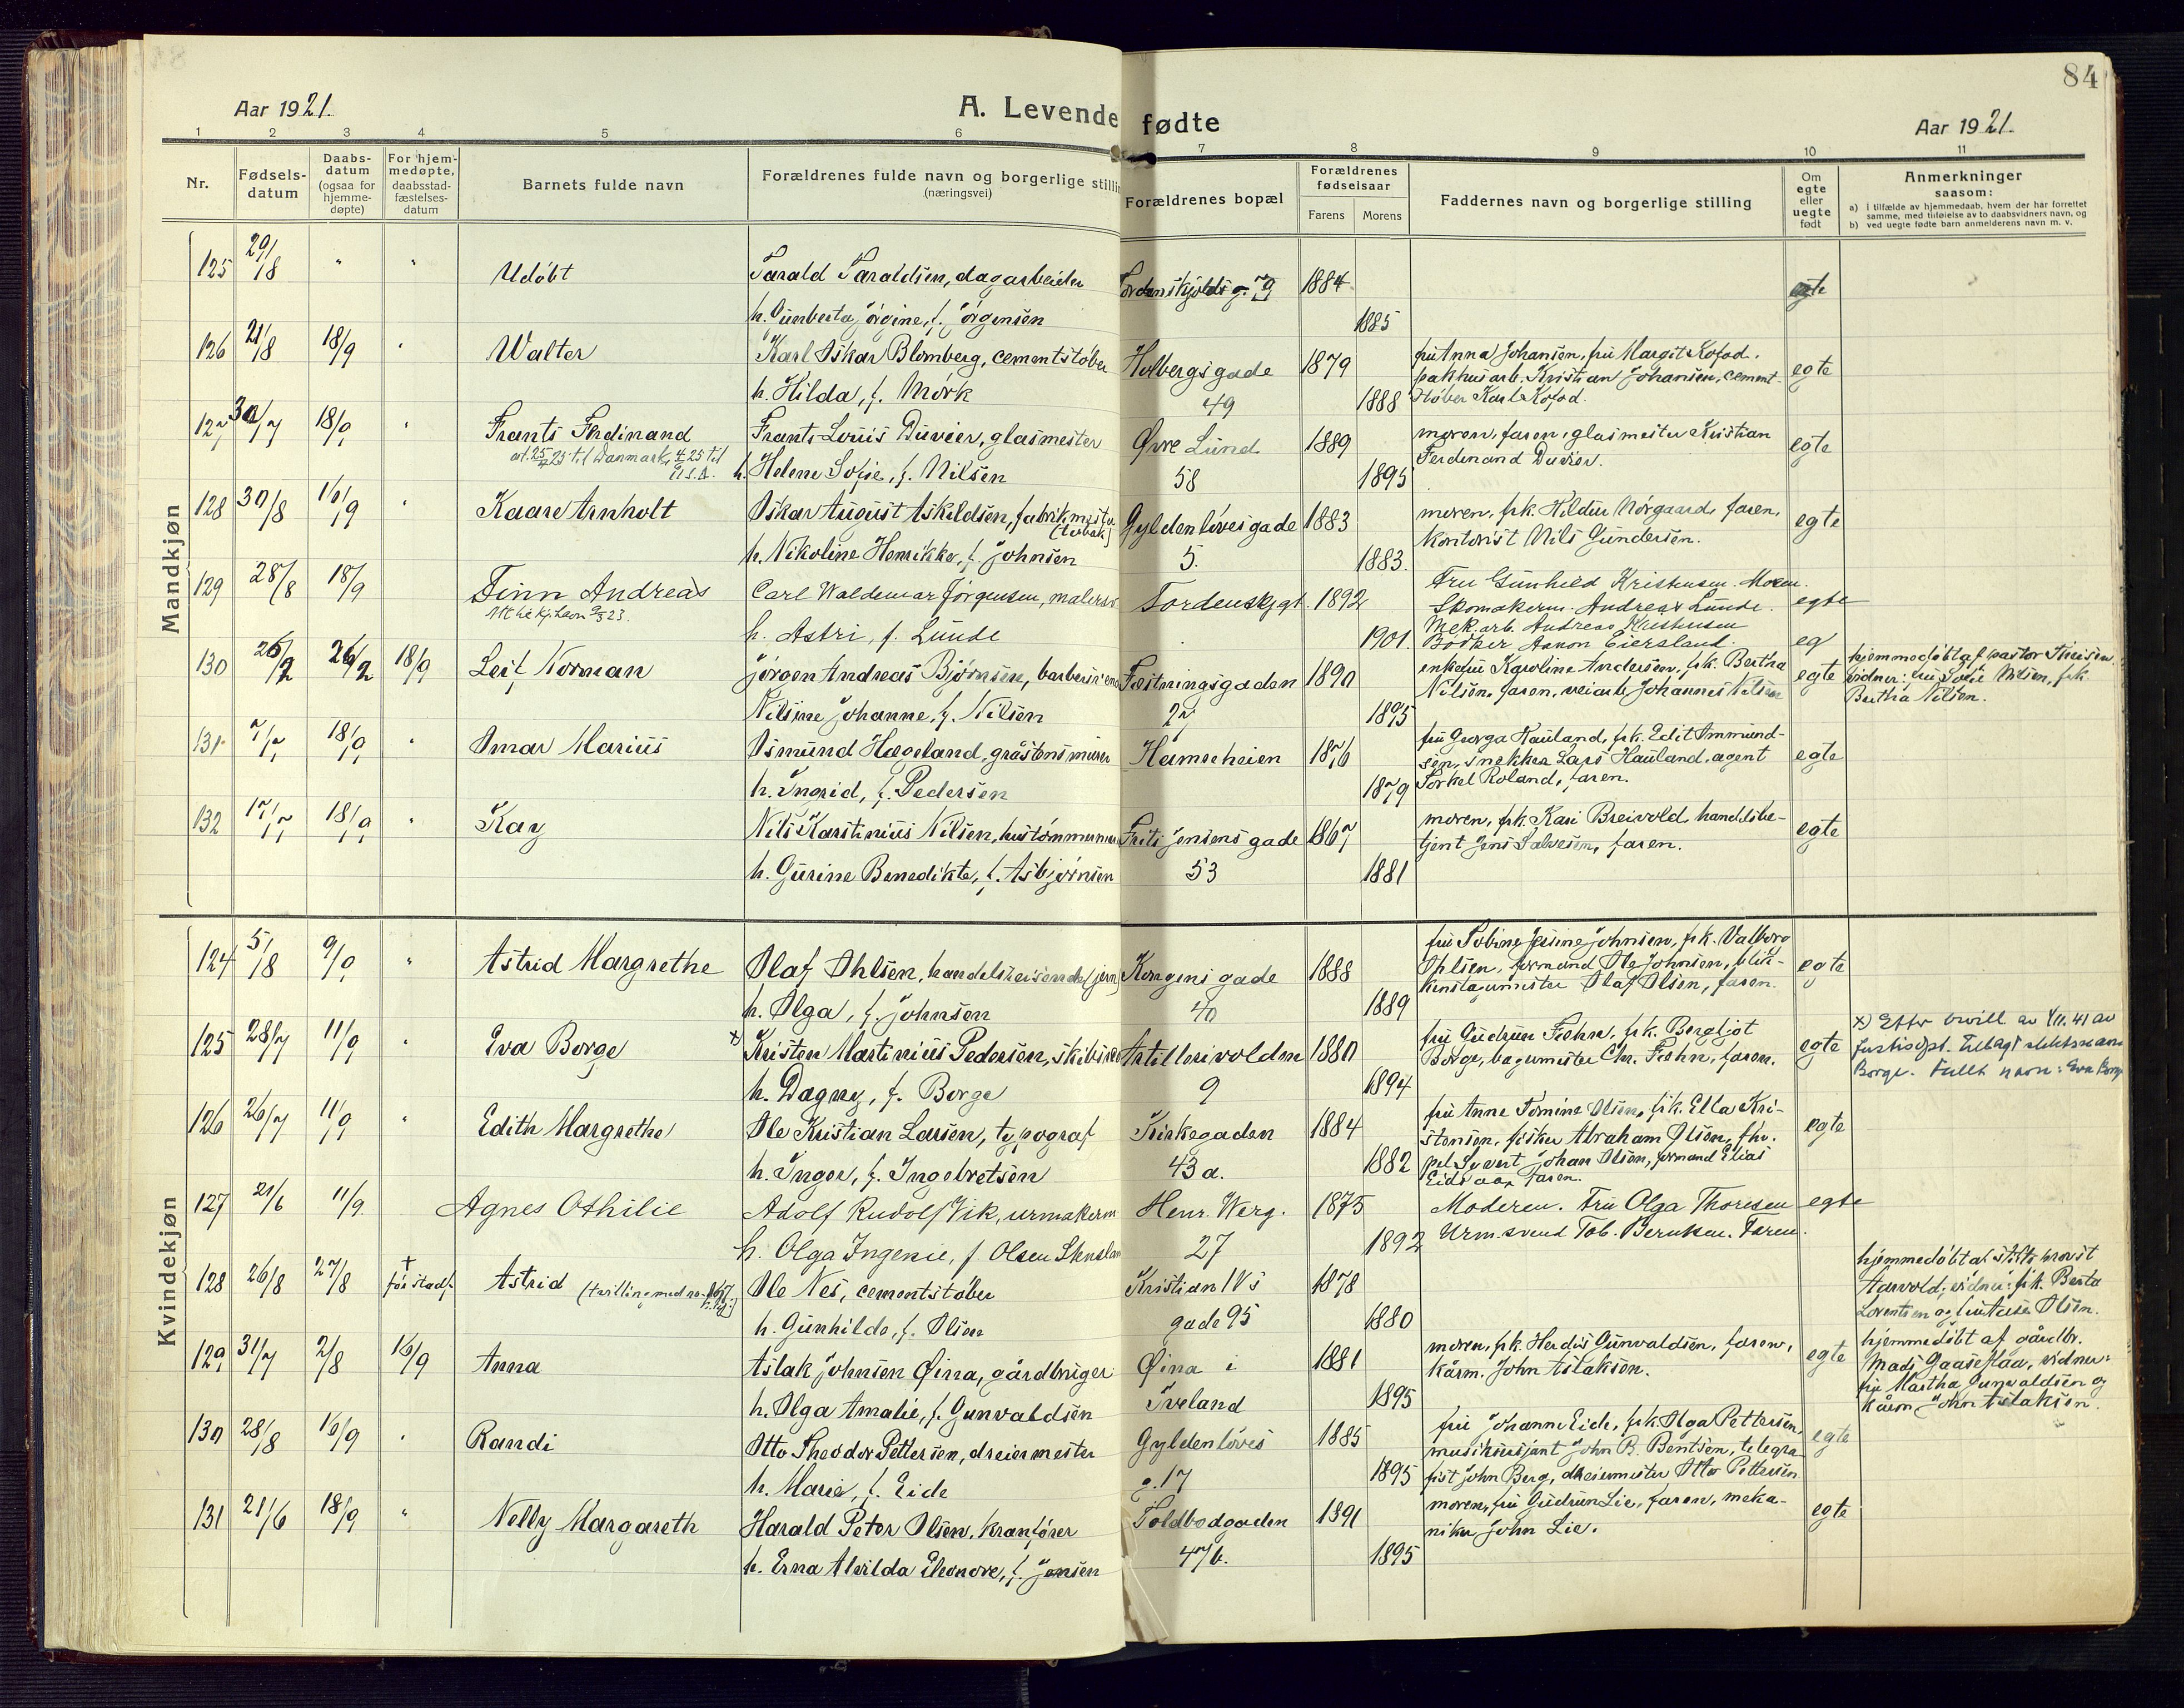 84
Aar 1921.
A. Levende fødte
Aar 1921.
1 2 3 4 5 6 7 8 9 10 11
Nr.
Fødsels-
datum
Daabs-
datum
(ogsaa for
hjemme-
døpte)
For hjem-
medøpte,
daabsstad-
fæstelses-
datum
Barnets fulde navn
Forældrenes fulde navn og borgerlige stilling
(næringsvei)
Forældrenes bopæl
Forældrenes
fødselsaar
Farens Morens
Faddernes navn og borgerlige stilling
Om
egte
eller
uegte
født
Anmerkninger
saasom:
a) i tilfælde av hjemmedaab, hvem der har forrettet
samme, med tilføielse av to daabsvidners navn, og
b) ved uegte fødte barn anmelderens navn m. v.
Mandkjøn
125 29/8 " " Udøbt Tarald Taraldsen, dagarbeider Tordenskjolds g. 1884 egte
h. Gunberta Jørgine, f. Jørgensen 1885
126 21/8 18/9 " Walter Karl Oskar Blomberg, cementstøber Holbergsgade 1879 fru Anna Johansen, fru Margit Kofod, egte
pakhusarb. Kristian Johansen, cement-
h. Hilda, f. Mørk 49 1888 støber Karl Kofod.
127 30/7 18/9 " Frants Ferdinand Frants Louis Duvier, glasmester Øvre Lund 1889 moren, faren, glasmester Kristian egte
til Danmark, 25 til
U.S.A. h. Helene Sofie, f. Nilsen 58 1895 Ferdinand Duvier.
128 30/8 16/9 " Kaare Arnholt Oskar August Askildsen, fabrikmester Gyldenløvesgade 1883 moren, frk. Hildur Nørgaard, faren, egte
(tobak)
h. Nikoline Henrikke, f. Johnsen 5. 1883. kontorist Nils Gundersen.
129 28/8 18/9 Finn Andreas Carl Waldemar Jørgensen, malersv. Tordenskjgt. 1892 Fru Gunhild Kristensen. Moren. egte
Skomakerm. Andreas Lunde.
h. Astri, f. Lunde 1901. Mek. arb. Andreas Kristensen
Bødker Aanon Eiersland. eg
130 26/2 26/2 18/9 Leif Norman Jørgen Andreas Bjørnsen, barbersvend Fæstningsgaden 1890 enkefru Karoline Andersen, frk. Bertha egte hjemmedøbt af pastor Theisen.
Nilsine Johanne, f. Nilsen 27 1895 Nilsen, faren, veiarb. Johannes Nilsen vidner: fru Sofie Nilsen, frk.
Bertha Nilsen.
131 7/7 18/9 " Omar Marius Osmund Hægeland, gråstensmurer Hamreheien 1876 fru Georga Hauland, frk. Edit Ommund- egte
sen, snekker Lars Hauland, agent
h. Ingrid, f. Pedersen 1879 Torkel Roland, faren.
132 17/7 18/9 " Kay Nils Karstinius Nilsen, hustømmermand Frits Jensens gade 1867 moren, frk. Kari Breivold, handelsbe- egte
h. Gurine Benedikte, f. Asbjørnsen 53 1881 tjent Jens Salvesen, faren.
Kvindekjøn
124 5/8 9/9 " Astrid Margrethe Olaf Ohlsen, handelsreisende (jern) Kongens gade 1888 fru Tobine Jesine Johnsen, frk. Valborg egte
Ohlsen, formand Ole Johnsen, blik-
h. Olga, f. Johnsen 40 1889 kenslagermester Olaf Olsen, faren.
125 28/7 11/9 " Eva Borge x) Kristen Martinius Pedersen, Artillerivolden 1880 fru Gudrun Frøhn, frk. Bergljot egte x) Efter bevill av 41 av
Borge, bagermester Chr. Frøhn, faren. Justisdpt. tillagt slektsnavn
h. Dagny, f. Borge 9 1894 Borge. Fullt navn: Eva Borge
126 26/7 11/9 " Edith Margrethe Ole Kristian Larsen, typograf Kirkegaden 1884 fru Anne Tomine Olsen, frk. Ella Kri- egte
stensen, fisker Abraham Olsen,
h. Inger, f. Ingebretsen 43 a. 1882 Syvert Johan Olsen, formand Elias
Eidsaa, faren.
127 21/6 11/9. Agnes Othilie Adolf Rudolf Vik, urmakerm. Henr. Werg. 1875 Moderen. Fru Olga Thoresen egte
h. Olga Ingenie, f. Olsen Stensland 27 1892 Urm. svend Tob. Berntsen. Faren.
128 26/8 27/8 + før stadf. Astrid (tvilling med no. Ole Nes, cementstøber Kristian IVs 1878 hjemmedøbt af stiftsprovst
Aarvold, vidner: frk. Berta
h. Gunhilde, f. Olsen gade 95 1880 Lorentsen og fru Aase Olsen.
129 31/7 2/8 16/9 Anna Aslak Johnsen Øina, gårdbruger Øina i 1881 moren, frk. Herdis Gunvaldsen, faren, egte hjemmedøbt af gårdbr.
kårm. John Aslaksen. Mads Gaaseflaa, vidner:
h. Olga Amalie, f. Gunvaldsen Iveland 1895 fru Martha Gunvaldsen og
kårm. John Aslaksen.
130 28/8 16/9 " Randi Otto Theodor Pettersen, dreiermester Gyldenløves 1885 fru Johanne Eide, frk. Olga Pettersen, egte
musiksersjant John B. Bentsen, telegra-
h. Marie, f. Eide g. 17 1895 fist John Berg, dreiermester Otto Pettersen
131 21/6 18/9 " Nelly Margareth Harald Peter Olsen, kranfører Toldbodgaden 1891 moren, fru Gudrun Lie, faren, meka- egte
niker John Lie.
h. Erna Alvilda Eleonore, f. Jensen 47b. 1895